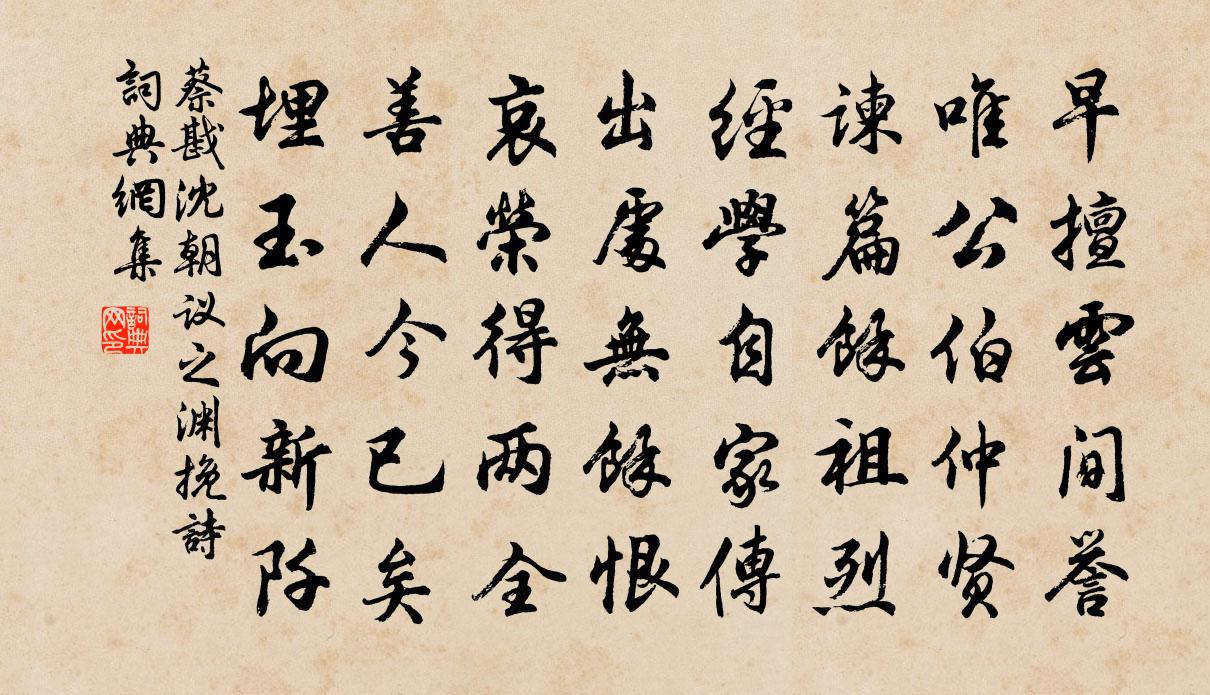 早擅雲間誉
唯公伯仲贤
諫篇餘祖烈
經學自家傳
出處無餘恨
哀榮得两全
善人今已矣
埋玉向新阡
蔡戡沈朝议之渊挽詩
詞典網集
詞典网印